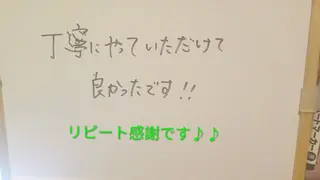 丁寧にやっていただけて
良かったです!!
リピート感謝です♪♪